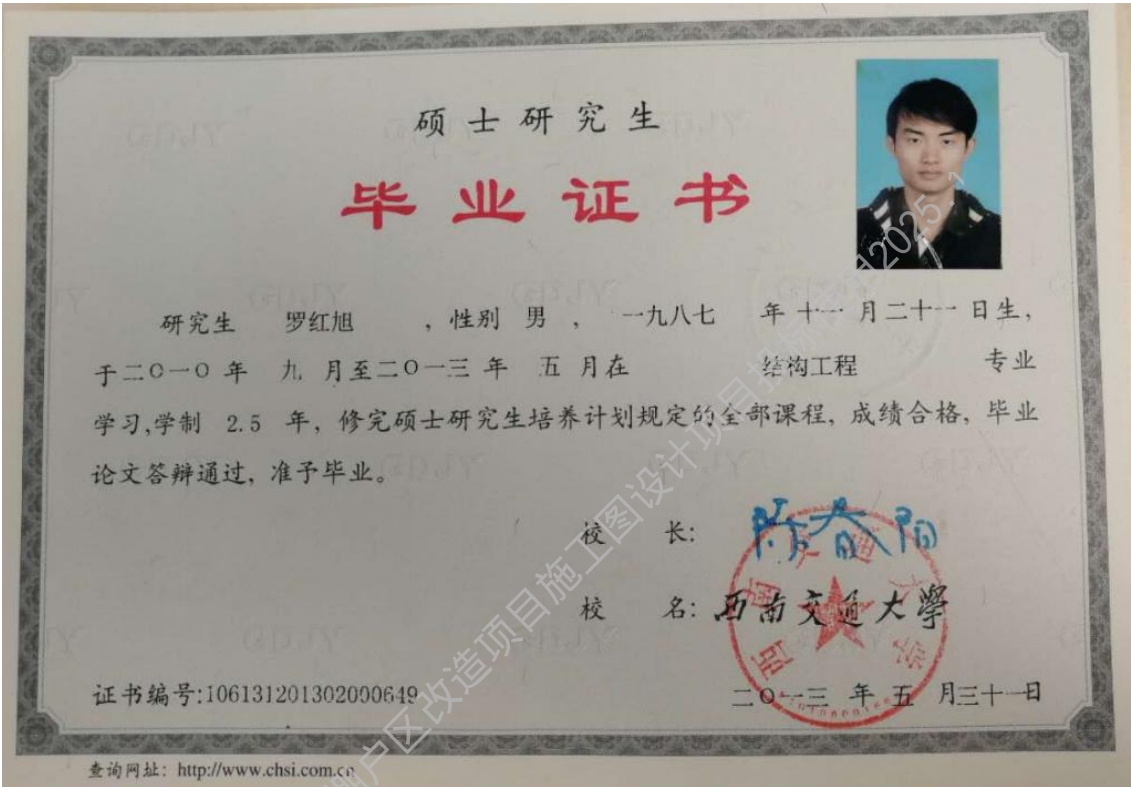 硕士研究生
毕业证书
研究生 罗红旭 ，性别 男 ， 一九八七 年 十一 月 二十一 日生，
于二〇一〇 年 九 月至二〇一三 年 五 月在 结构工程 专业
学习,学制 2.5 年，修完硕士研究生培养计划规定的全部课程，成绩合格，毕业
论文答辩通过，准予毕业。
校 长: 陈春阳
校 名: 西南交通大學
西南交通大学
证书编号:106131201302000649
二〇一三 年 五 月三十一日
查询网址：http://www.chsi.com.cn
户区改造项目施工图设计项目投标 2025